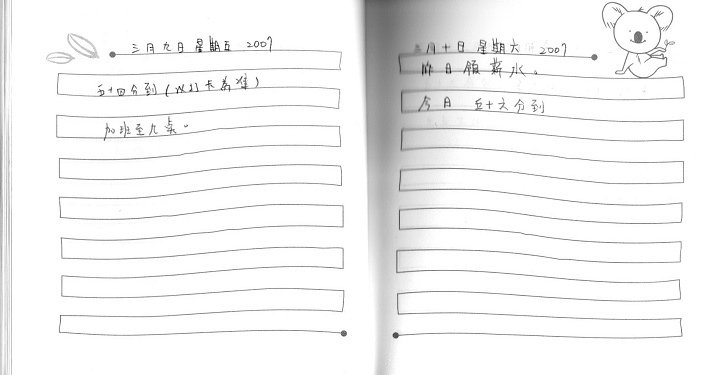 三月九日 星期五 2007
五十四分到(以打卡為準)
加班至九點。
三月十日 星期六 2007
昨日領薪水。
今日 五十六分到